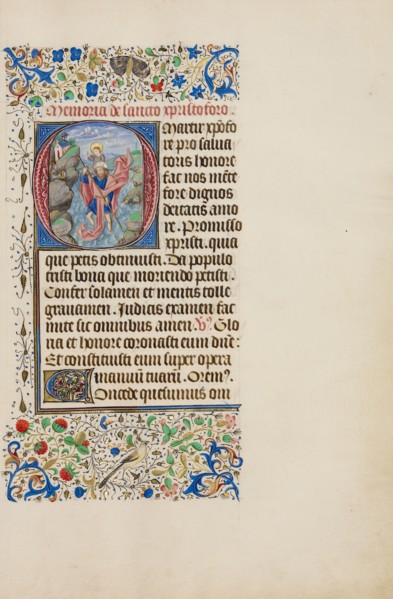 Memoria de sancto xpristoforo.
Martir xpofo
re pro salua
toris honore
fac nos mete
fore dignos
deitatis amo
re. Promisso
xpristi. quia
que petis obtinuisti. Da populo
tristi bona que moriendo petisti.
Confer solamen et mentis tolle
grauamen. Judicis examen fac
mite sic omnibus amen. V Glo
ria et honore coronasti eum dne:
Et constituisti eum super opera
manuum tuaru. Orem
Concede quesumus om